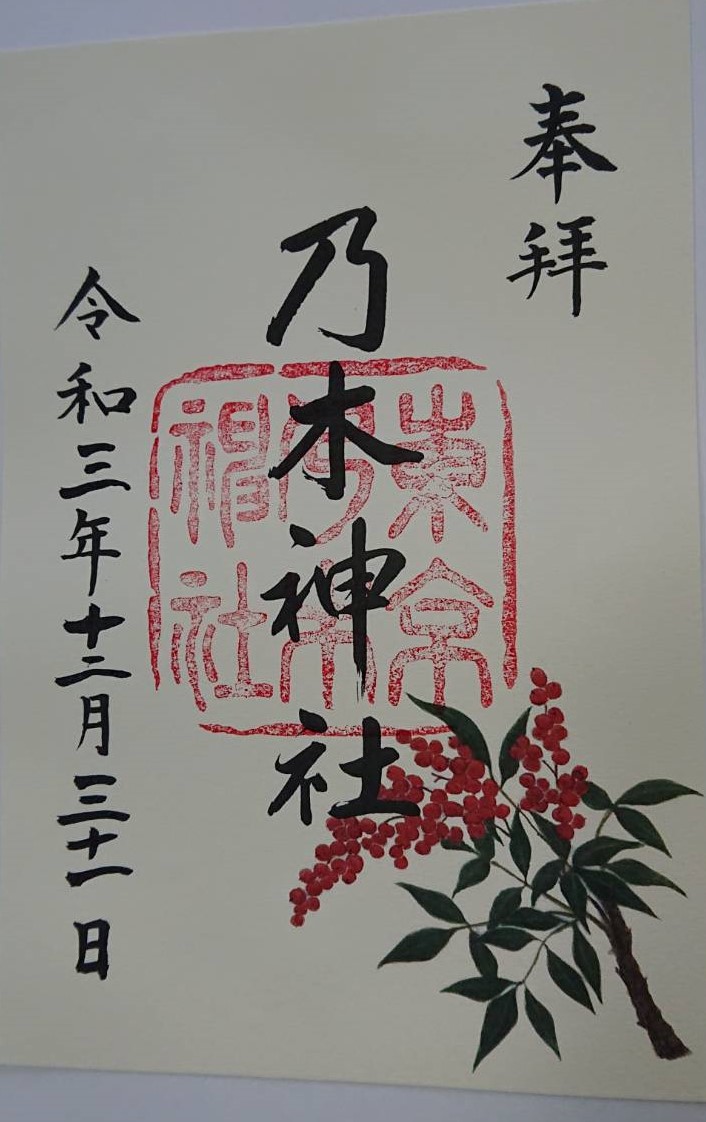 奉拝
乃木神社
令和三年十二月三十一日
東京
乃木
神社